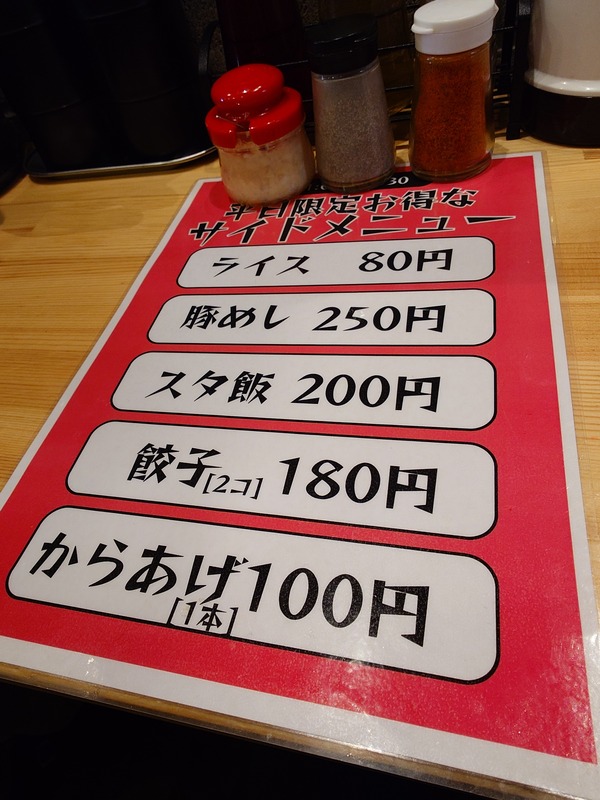 平日限定お得な
サイドメニュー
ライス 80円
豚めし 250円
スタ飯 200円
餃子[2コ] 180円
からあげ[1本] 100円